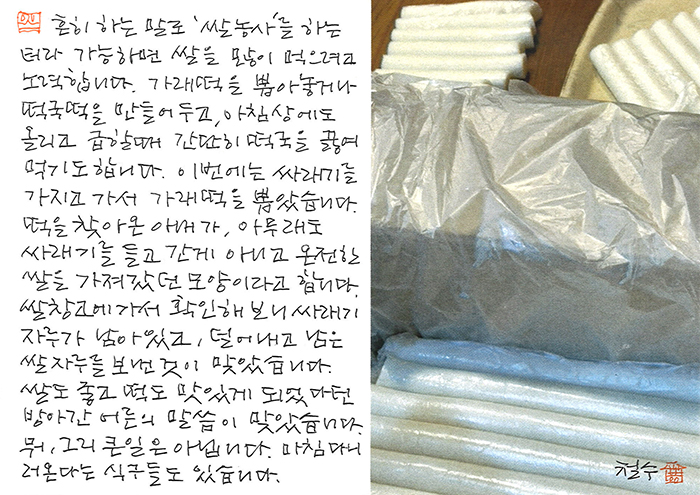 흔히 하는 말로 '쌀농사'를 하는
터라 가능하면 쌀을 많이 먹으려고
노력합니다. 가래떡을 뽑아놓거나
떡국떡을 만들어 두고, 아침상에도
올리고 급할때 간단히 떡국을 끓여
먹기도 합니다. 이번에는 싸래기를
가지고 가서 가래떡을 뽑았습니다.
떡을 찾아온 아내가, 아무래도
싸래기를 들고 간게 아니고 온전한
쌀을 가져갔던 모양이라고 합니다.
쌀창고에 가서 확인해 보니 싸래기
자루가 남아있고, 덜어내고 남은
쌀자루를 보낸 것이 맞았습니다.
쌀도 좋고 떡도 맛있게 되었다던
방아간 어른의 말씀이 맞았습니다.
뭐, 그리 큰일은 아닙니다. 마침 다니
러온다는 식구들도 있습니다.
철수